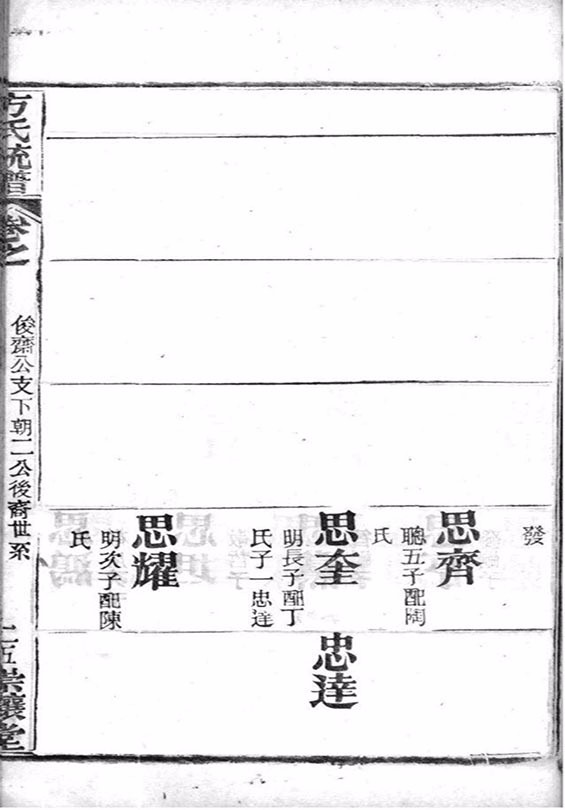 發
思齊
聰五子配陶
氏
思奎
明長子配丁
氏子一忠達
思耀
明次子配陳
氏
忠達
方氏統譜
卷之一
俊齋公支下朝二公後裔世系
二五
崇讓堂